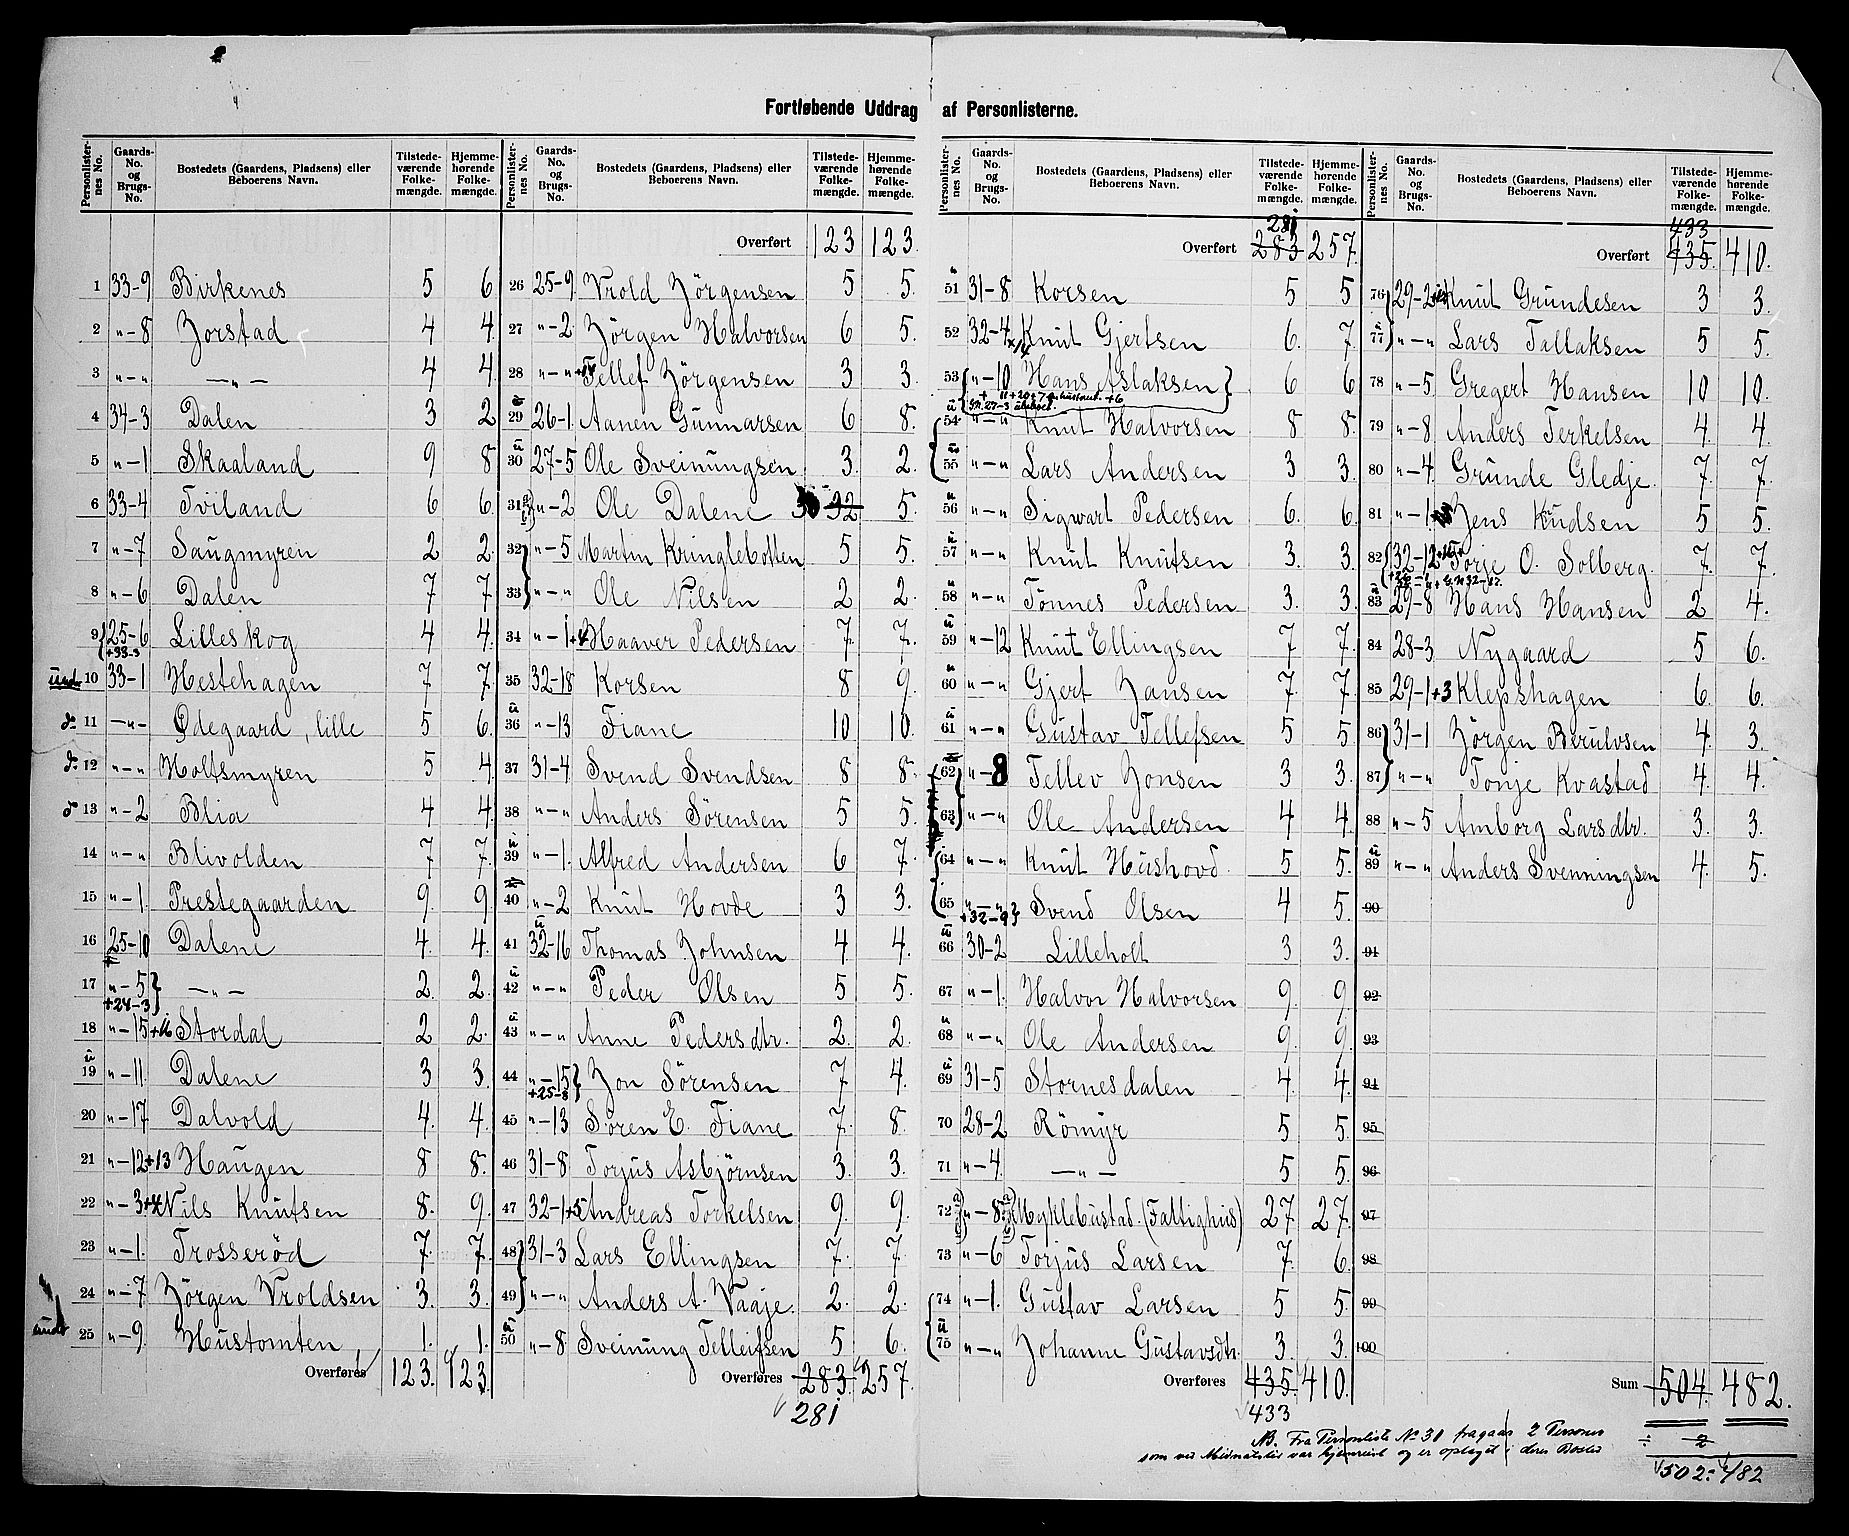 Fortløbende Uddrag af Personlisterne.
Personlisternes No. Gaards-No. og Brugs-No. Bostedets (Gaardens, Pladsens) eller Beboerens Navn. Tilstedeværende Folkemængde. Hjemmehørende Folkemængde.
1 33-9 Birkenes 5 6
2 "-8 Jorstad 4 4
3 "-" -"- 4 4.
4 34-3 Dalen 3 2
5 "-1 Skaaland 9 8
6 33-4 Tviland 6 6.
7 "-7 Saugmyren 2 2.
8 "-6 Dalen 7 7
9 25-6 +33-3 Lilleskog 4 4.
und. 10 33-1 Hestehagen 7 7
do 11 -"- Ødegaard, lille 5 6.
do 12 "-" Holtsmyren 5 4.
do 13 "-2 Blia 4 4
14 "-" Blivolden 7 7.
15 "-1. Prestegaarden 9. 9.
16 25-10 Dalene 4. 4.
17 "-5 +24-3 -"- 2. 2.
18 "-15+16 Stordal 2 2.
ú 19 "-11. Dalene 3 3.
20 "-17 Dalvold 4. 4.
21 "-12+13 Haugen 8 8.
22 "-3+4 Nils Knutsen 8. 9.
23 "-1. Trosserød 7. 7.
24 "-7. Jörgen Vroldsen 3. 3.
undt 25 "-9. Hustomten 1. 1.
Overføres 123. 123.
Personlisternes No. Gaards-No. og Brugs-No. Bostedets (Gaardens, Pladsens) eller Beboerens Navn. Tilstedeværende Folkemængde. Hjemmehørende Folkemængde.
Overført 123 123.
26 25-9 Vrold Jörgensen 5 5.
27 "-2 Jörgen Halvorsen 6 5.
28 "-" Tellef Jörgensen 3 3.
29 26-1. Aanen Gunnarsen 6 8.
ú 30 27-5 Ole Sveinungsen 3. 2.
31 "-2 Ole Dalene 30 32 5.
32 "-5 Martin Kringlebotten 5 5.
33 "-" Ole Nilsen 2 2.
34 "-1+4 Haaver Pedersen 7. 7.
35 32-18 Korsen 8 9.
ú 36 "-13 Fiane 10 10.
37 31-4 Svend Svendsen 8 8.
38 "-" Anders Sörensen 5 5.
ú 39 "-1. Alfred Andersen 6 7.
40 "-2 Knut Hovde 3 3.
41 ú 32-16 Thomas Johnsen 4 4.
ú 42 "-" Peder Olsen 5 5.
ú 43 "-" Anne Pedersdtr. 2. 2.
44 "-15 +25-8 Jon Sörensen 7 4.
45 "-13 Sören E. Fiane 7. 8.
46 31-8 Torjus Asbjørnsen 3. 3.
47 32-1+5 Andreas Torkelsen 9. 9.
48 31-3 Lars Ellingsen 7. 7.
49 "-" Anders A. Vaaje. 2. 2.
ú 50 "-8 Sveinung Telleifsen 5 6.
Overføres 283. 257.
281
Personlisternes No. Gaards-No. og Brugs-No. Bostedets (Gaardens, Pladsens) eller Beboerens Navn. Tilstedeværende Folkemængde. Hjemmehørende Folkemængde.
281
Overført 283 257.
ú 51 31-8 Korsen 5 5
52 32-4 Knut Gjertsen 6. 7.
53 "-10 Hans Aslaksen 6 6
ú 54 "-" Knut Halvorsen 8 8.
ú 55 "-" Lars Andersen 3 3.
ú 56 "-" Sigwart Pedersen 6. 6.
ú 57 "-" Knut Knutsen 3. 3.
ú 58 "-" Tönnes Pedersen 3. 3.
ú 59 "-12 Knut Ellingsen 7 7.
ú 60 "-" Gjert Jansen 7 7.
ú 61 "-" Gustav Tellefsen 5 5.
62 "-8 Tellev Jonsen 3 3.
63 "-" Ole Andersen 4 4.
64 "-" Knut Hushovd. 5 5.
65 "-" +32-9 Svend Olsen 4 5.
ú 66 30-2 Lilleholt 3 3.
67 "-1. Halvor Halvorsen 9. 9.
ú 68 "-" Ole Andersen 9. 9.
ú 69 31-5 Stornesdalen 4. 4.
70 28-2 Römyr 5 5.
71 "-4. -"- 5 5.
72 "-8 Myklebustad. (Fattighus) 27. 27.
73 "-6 Torjus Larsen 7. 6.
74 "-1. Gustav Larsen 5 5.
ú 75 "-" Johanne Gustavsdtr. 3. 3.
Overføres 435. 410.
433
Personlisternes No. Gaards-No. og Brugs-No. Bostedets (Gaardens, Pladsens) eller Beboerens Navn. Tilstedeværende Folkemængde. Hjemmehørende Folkemængde.
433
Overført 435. 410.
76 29-2 Knut Grundesen 3 3.
ú 77 "-" Lars Tallaksen 5 5.
78 "-5 Gregert Hansen 10 10.
79 "-8 Anders Terkelsen 4. 4.
80 "-4 Grunde Gledje. 7. 7.
81 "-1 Jens Kudsen 5 5.
82 32-12 Torje O. Solberg. 7. 7.
ú 83 29-8 Hans Hansen 2 4.
84 28-3 Nygaard 5 6.
85 29-1+3 Klepshagen 6. 6.
86 31-1 Jörgen Berulvsen 4. 3.
87 "-" Tonje Kvastad 4. 4.
88 "-5 Amborg Larsdtr. 3. 3.
ú 89 "-" Anders Svenningsen 4. 5.
90
91
92
93
94
95
96
97
98
99
100
Sum 504. 482.
NB. Fra Personliste No 31 fragaar 2 Personer
som ved Midnatstid var hjemreist og er optaget i deres Bosted
÷ 2
502. 482